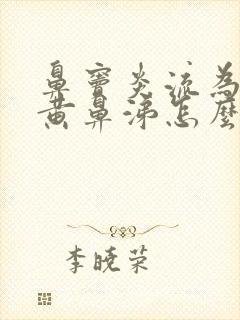 鼻窦炎流为
黄鼻涕怎麽
李晓荣